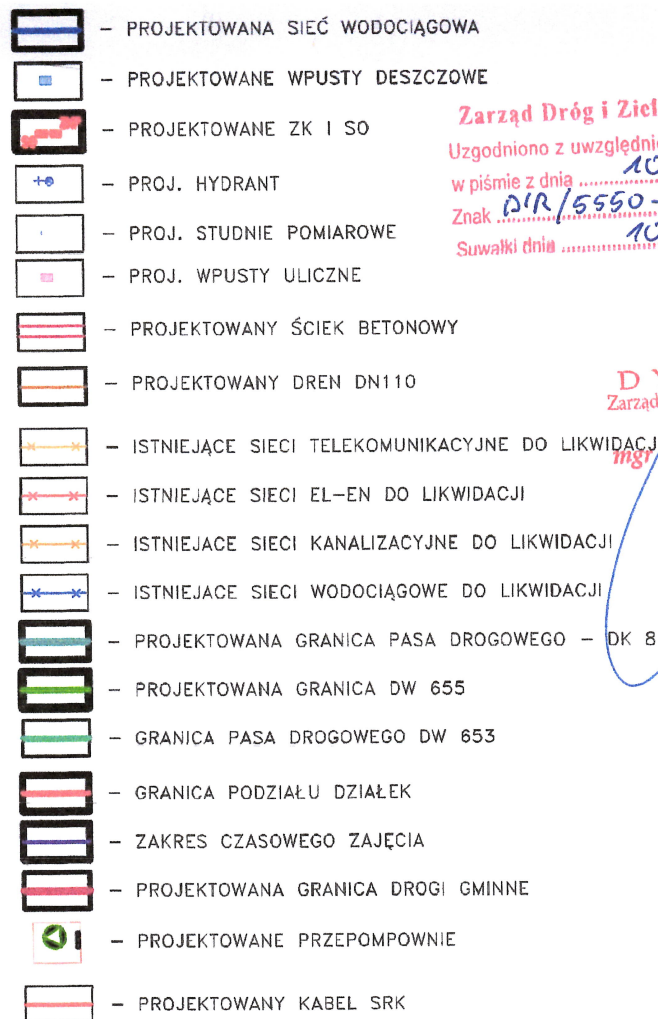 – PROJEKTOWANA SIEĆ WODOCIĄGOWA
– PROJEKTOWANE WPUSTY DESZCZOWE
– PROJEKTOWANE ZK I SO
– PROJ. HYDRANT
– PROJ. STUDNIE POMIAROWE
– PROJ. WPUSTY ULICZNE
– PROJEKTOWANY ŚCIEK BETONOWY
– PROJEKTOWANY DREN DN110
– ISTNIEJĄCE SIECI TELEKOMUNIKACYJNE DO LIKWIDACJ
– ISTNIEJĄCE SIECI EL–EN DO LIKWIDACJI
– ISTNIEJACE SIECI KANALIZACYJNE DO LIKWIDACJI
– ISTNIEJACE SIECI WODOCIĄGOWE DO LIKWIDACJI
– PROJEKTOWANA GRANICA PASA DROGOWEGO – DK 8
– PROJEKTOWANA GRANICA DW 655
– GRANICA PASA DROGOWEGO DW 653
– GRANICA PODZIAŁU DZIAŁEK
– ZAKRES CZASOWEGO ZAJĘCIA
– PROJEKTOWANA GRANICA DROGI GMINNE
– PROJEKTOWANE PRZEPOMPOWNIE
– PROJEKTOWANY KABEL SRK
Zarząd Dróg i Ziel
Uzgodniono z uwzględnie
w piśmie z dnia 10
Znak DIR/5550-
Suwałki dnia 10
D Y
Zarząd
mgr